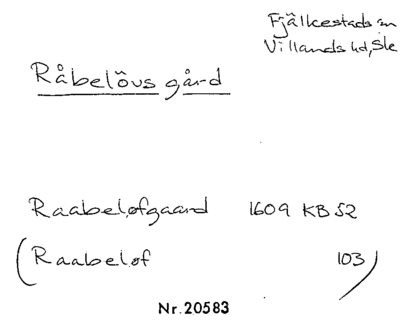 Fjälkestads sn
Villands hd, Skå
Råbelövs gård
Raabeløfgaard 1609 KB 52
(Raabeløf 103)
Nr. 20583